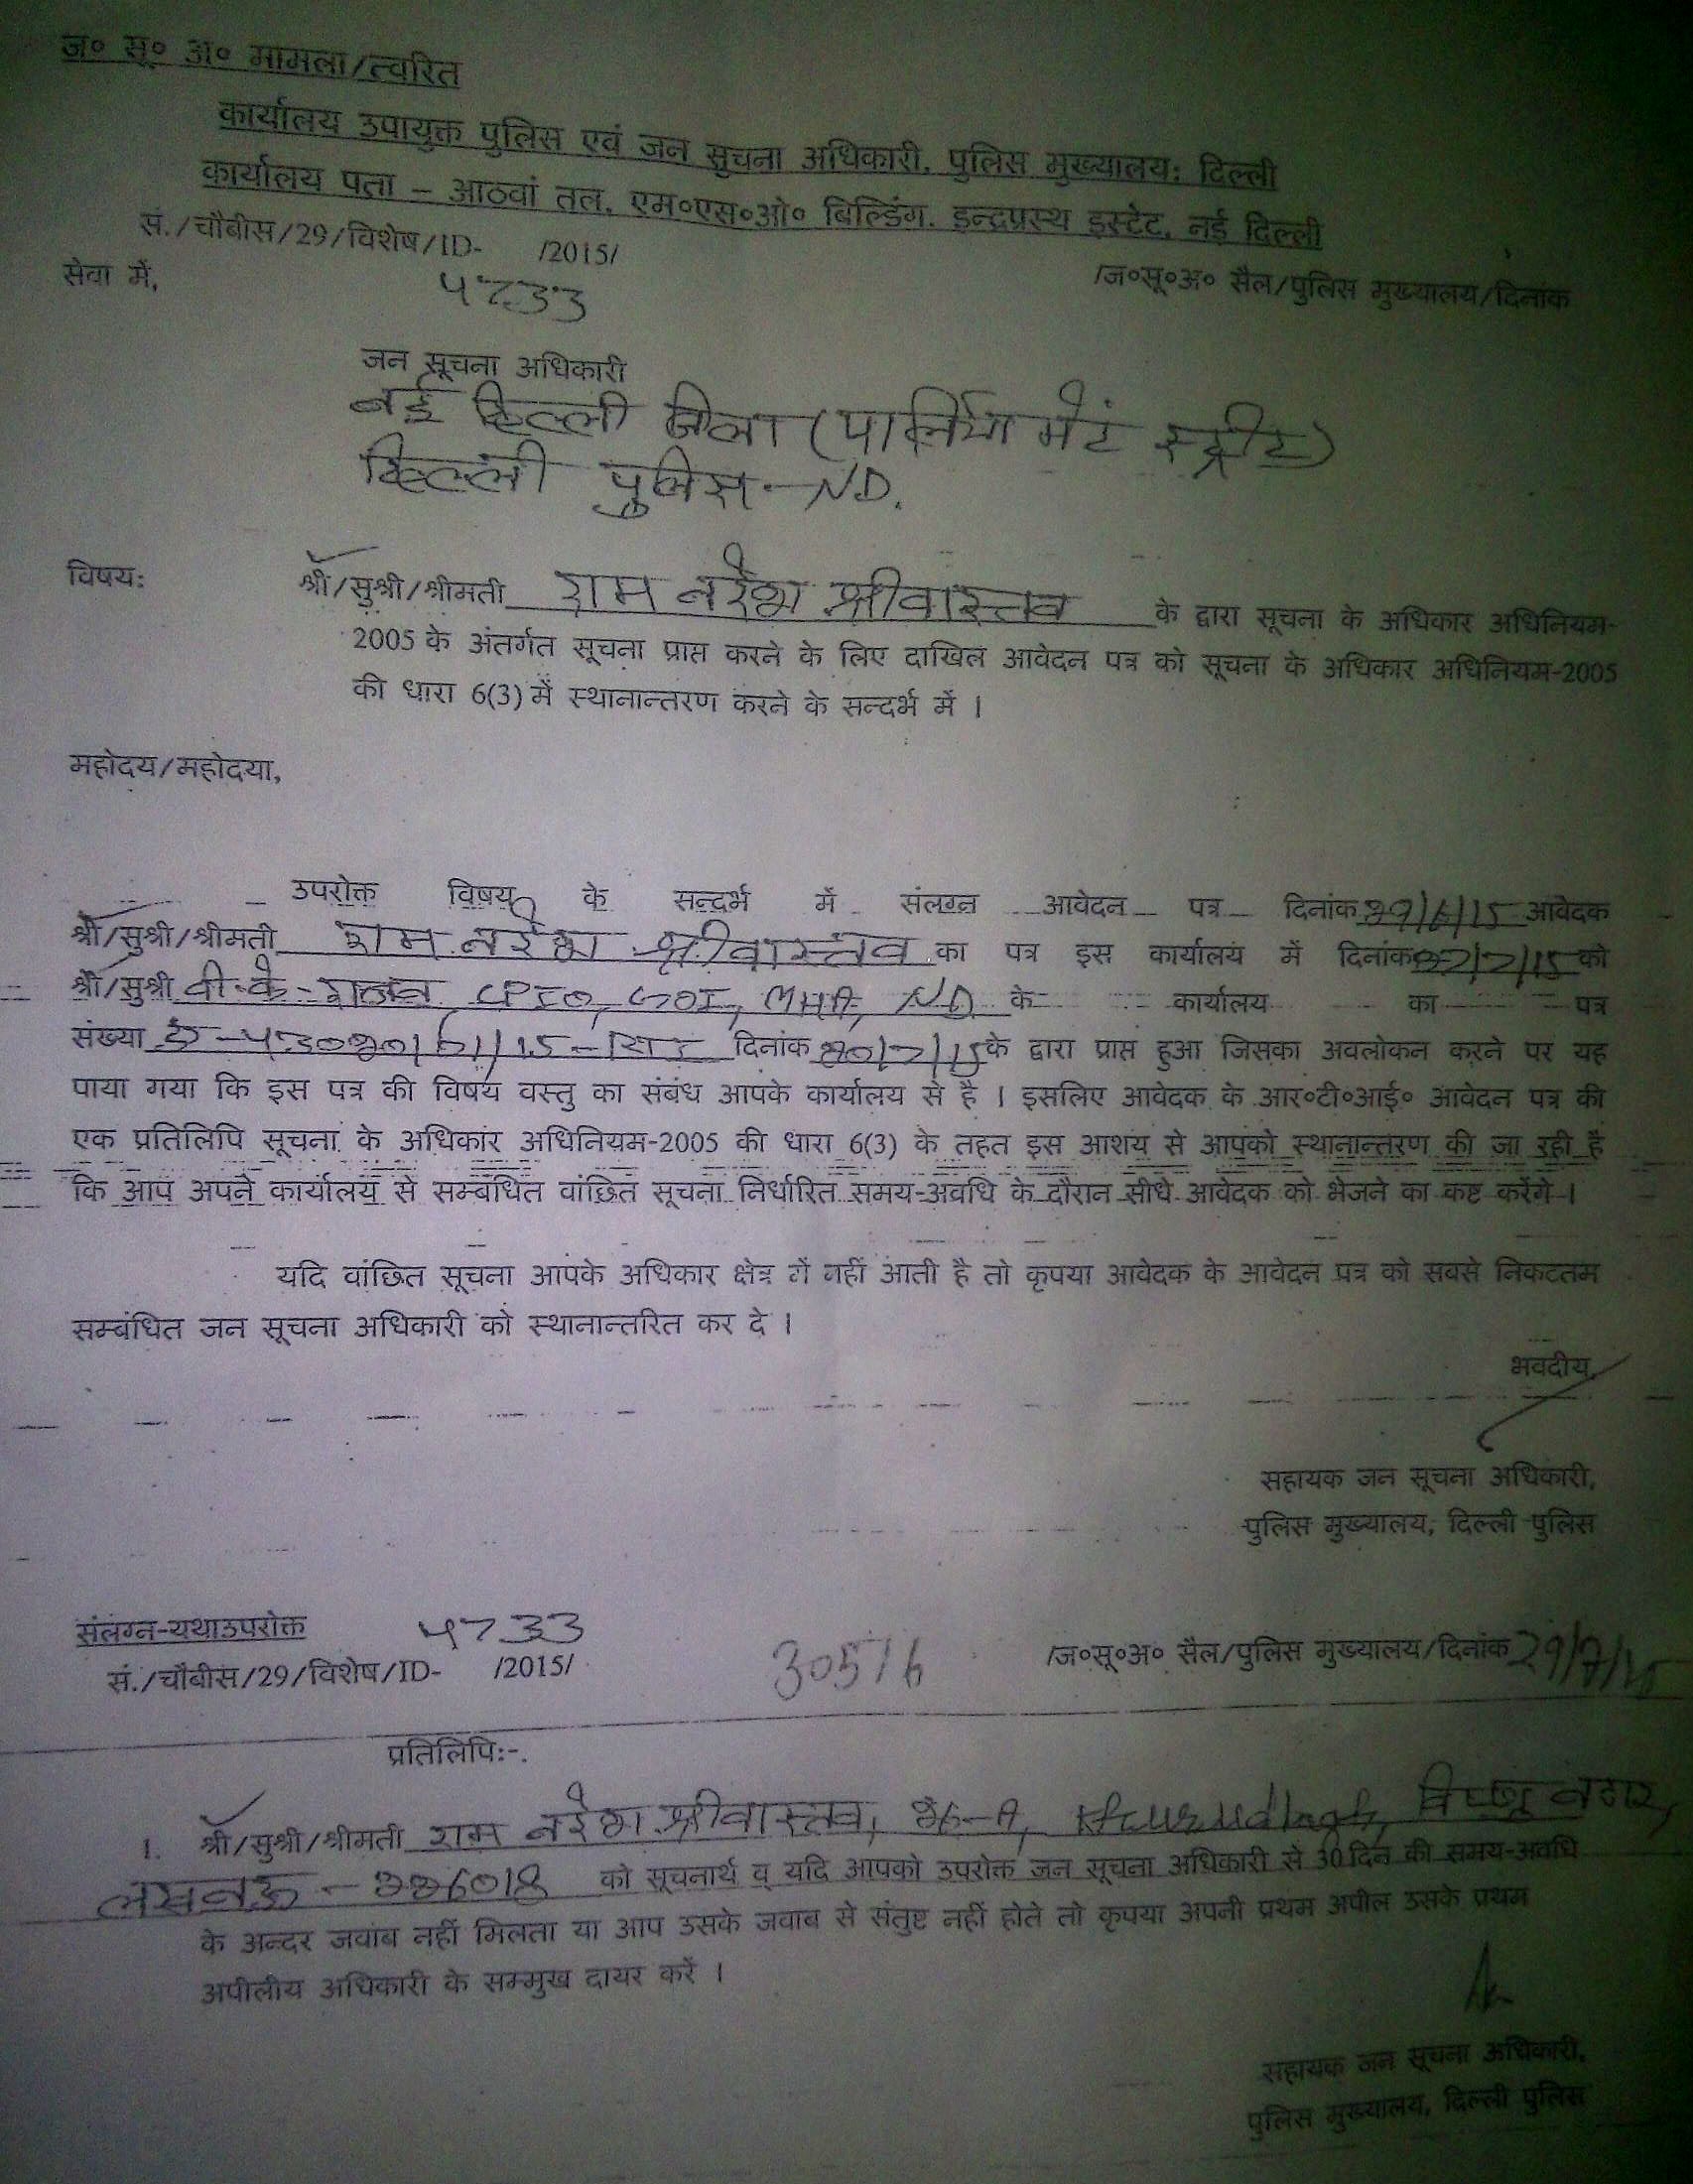 ज० सू० अ० मामला/त्वरित
कार्यालय उपायुक्त पुलिस एवं जन सूचना अधिकारी, पुलिस मुख्यालय: दिल्ली
कार्यालय पता – आठवां तल, एम०एस०ओ० बिल्डिंग, इन्द्रप्रस्थ इस्टेट, नई दिल्ली
सं./चौबीस/29/विशेष/ID- /2015/ /ज०सू०अ० सैल/पुलिस मुख्यालय/दिनांक
सेवा में,
4733
जन सूचना अधिकारी
नई दिल्ली जिला (पार्लियामेंट स्ट्रीट)
दिल्ली पुलिस-ND.
विषय: श्री/सुश्री/श्रीमती राम नरेश श्रीवास्तव के द्वारा सूचना के अधिकार अधिनियम-
2005 के अंतर्गत सूचना प्राप्त करने के लिए दाखिल आवेदन पत्र को सूचना के अधिकार अधिनियम-2005
की धारा 6(3) में स्थानान्तरण करने के सन्दर्भ में ।
महोदय/महोदया,
उपरोक्त विषय के सन्दर्भ में संलग्न आवेदन पत्र दिनांक /6/15 आवेदक
श्री/सुश्री/श्रीमती राम नरेश श्रीवास्तव का पत्र इस कार्यालय में दिनांक /7/15 को
श्री/सुश्री वी.के. CPIO, GOI, MHA, ND के कार्यालय का पत्र
संख्या दिनांक 20/7/15 के द्वारा प्राप्त हुआ जिसका अवलोकन करने पर यह
पाया गया कि इस पत्र की विषय वस्तु का संबंध आपके कार्यालय से है । इसलिए आवेदक के आर०टी०आई० आवेदन पत्र की
एक प्रतिलिपि सूचना के अधिकार अधिनियम-2005 की धारा 6(3) के तहत इस आशय से आपको स्थानान्तरण की जा रही है
कि आप अपने कार्यालय से सम्बंधित वांछित सूचना निर्धारित समय-अवधि के दौरान सीधे आवेदक को भेजने का कष्ट करेंगे ।
यदि वांछित सूचना आपके अधिकार क्षेत्र में नहीं आती है तो कृपया आवेदक के आवेदन पत्र को सबसे निकटतम
सम्बंधित जन सूचना अधिकारी को स्थानान्तरित कर दे ।
भवदीय,
सहायक जन सूचना अधिकारी,
पुलिस मुख्यालय, दिल्ली पुलिस
संलग्न-यथाउपरोक्त 4733
सं./चौबीस/29/विशेष/ID- /2015/ 30516 /ज०सू०अ० सैल/पुलिस मुख्यालय/दिनांक 29/7/15
प्रतिलिपि:-.
1. श्री/सुश्री/श्रीमती राम नरेश श्रीवास्तव, 26-A, विष्णु नगर,
लखनऊ - 226018 को सूचनार्थ व् यदि आपको उपरोक्त जन सूचना अधिकारी से 30 दिन की समय-अवधि
के अन्दर जवाब नहीं मिलता या आप उसके जवाब से संतुष्ट नहीं होते तो कृपया अपनी प्रथम अपील उसके प्रथम
अपीलीय अधिकारी के सम्मुख दायर करें ।
सहायक जन सूचना अधिकारी,
पुलिस मुख्यालय, दिल्ली पुलिस